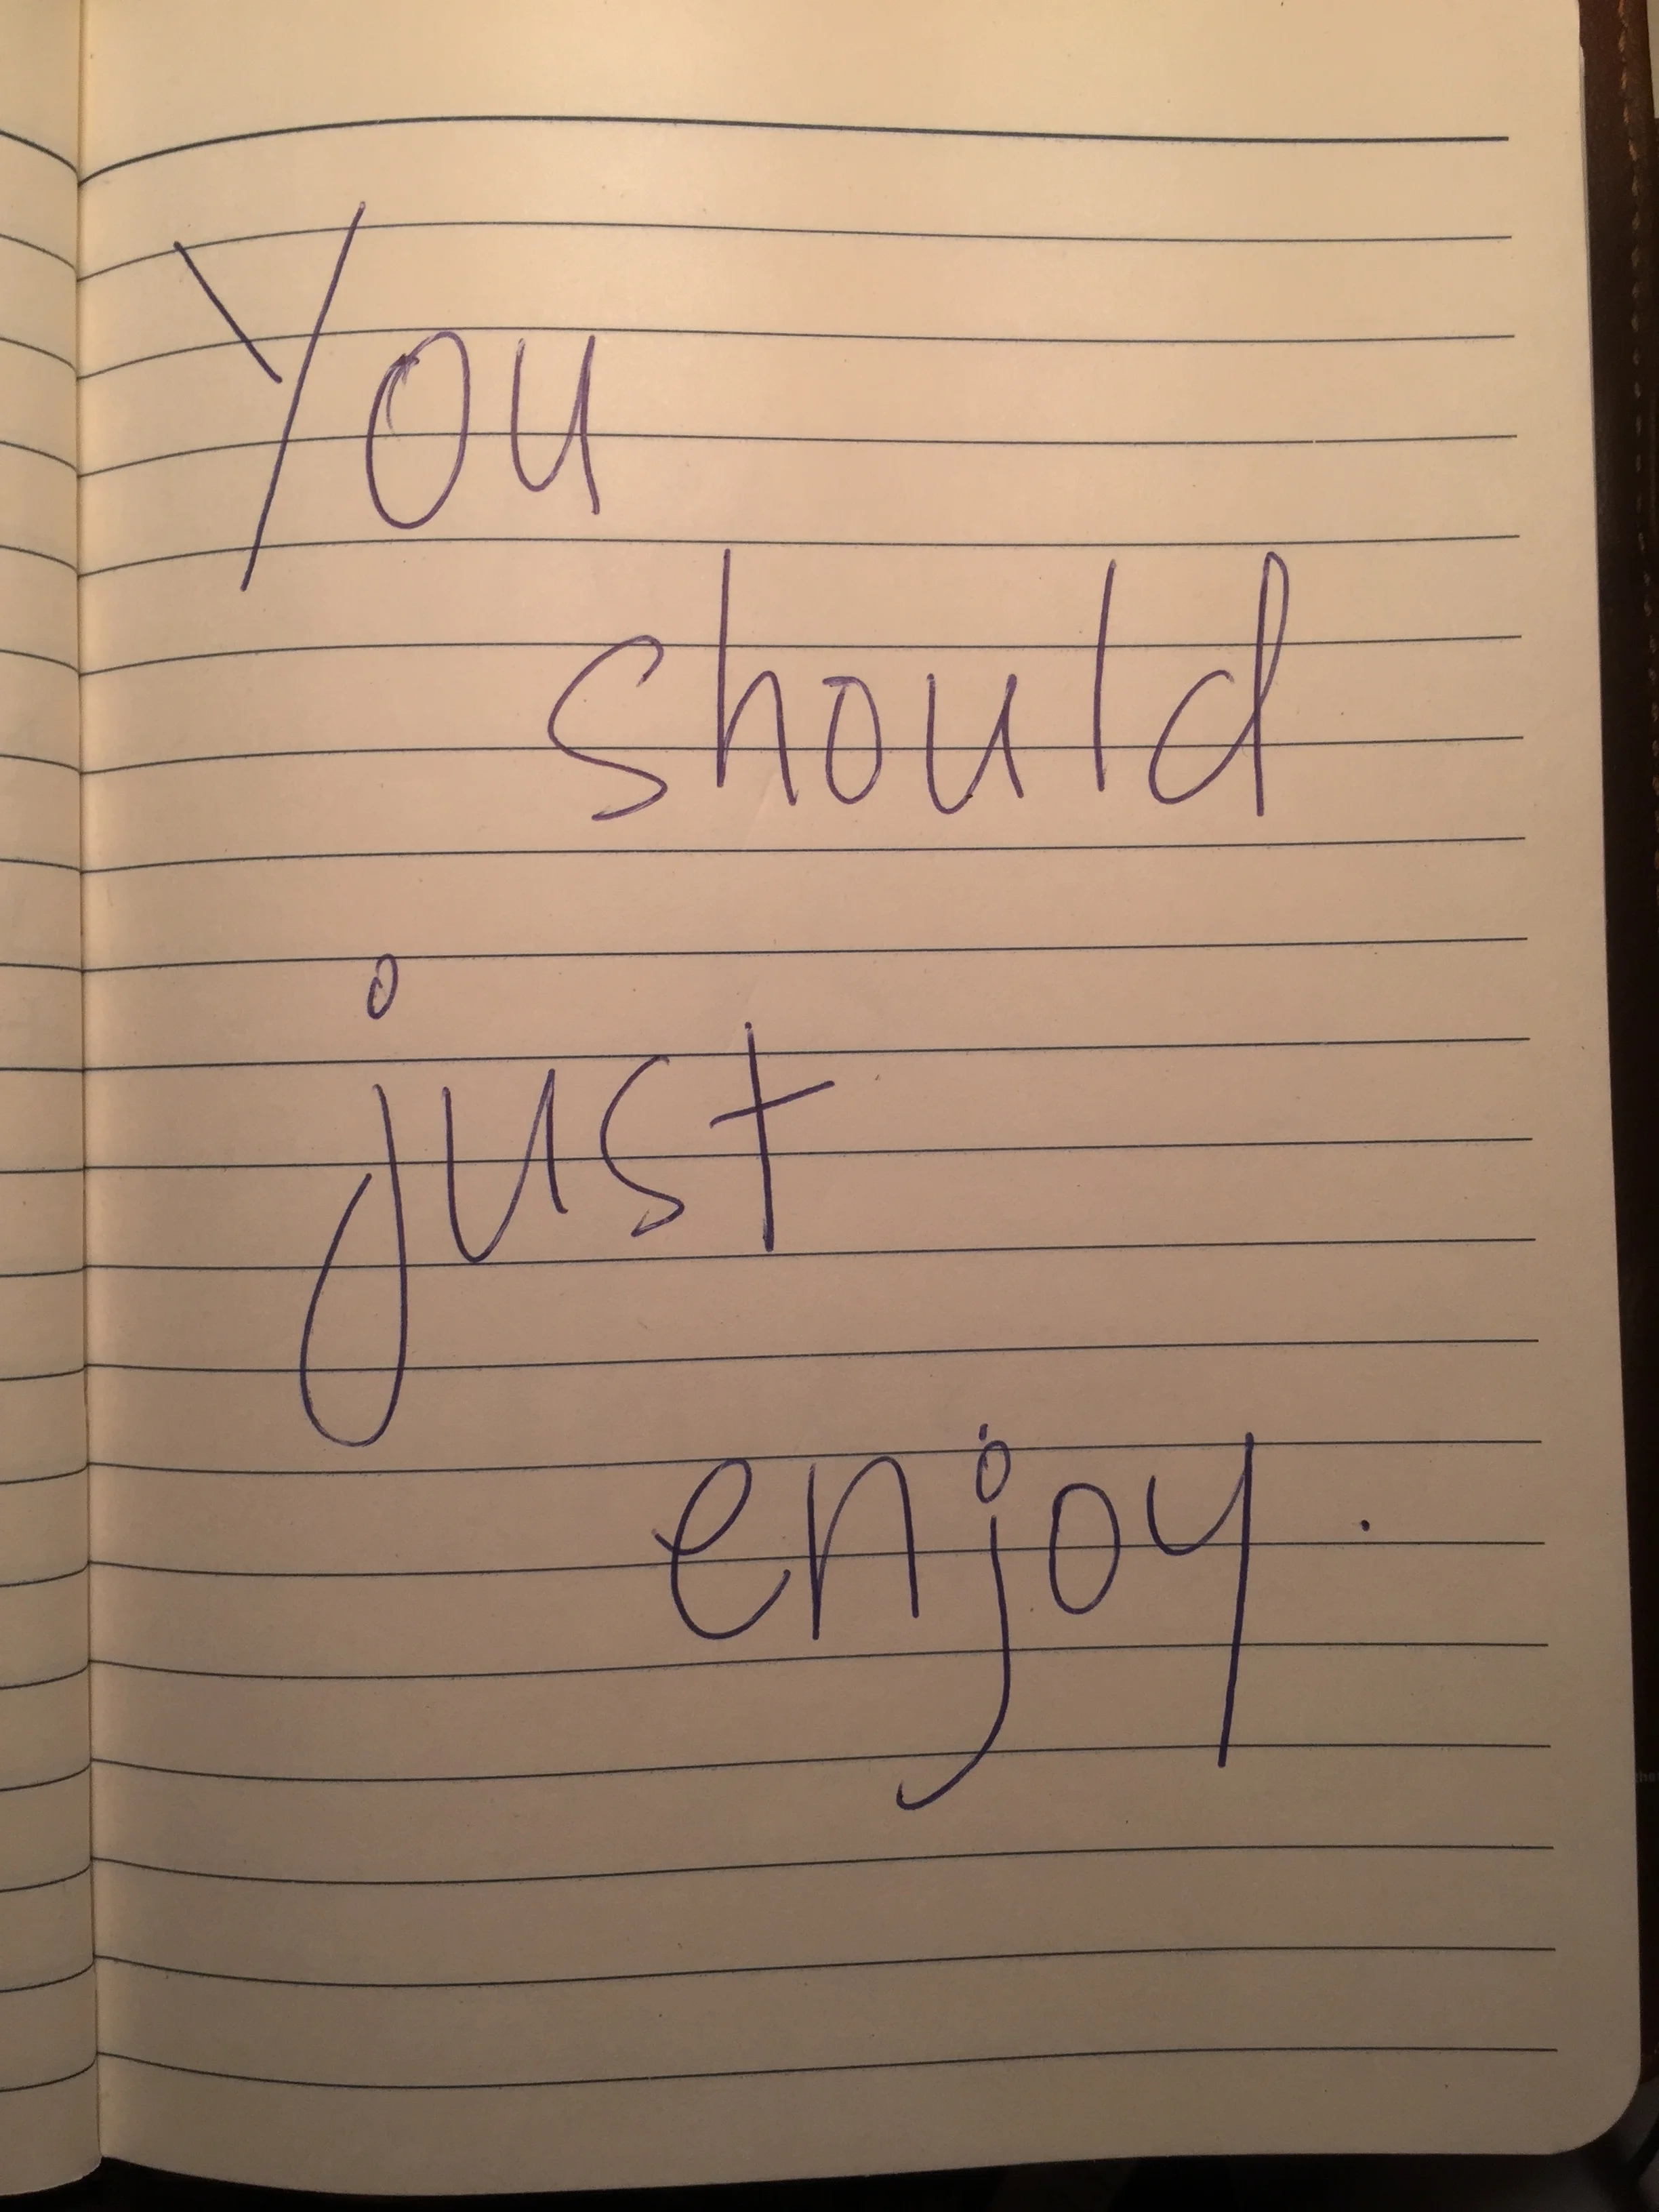 You
should
just
enjoy.